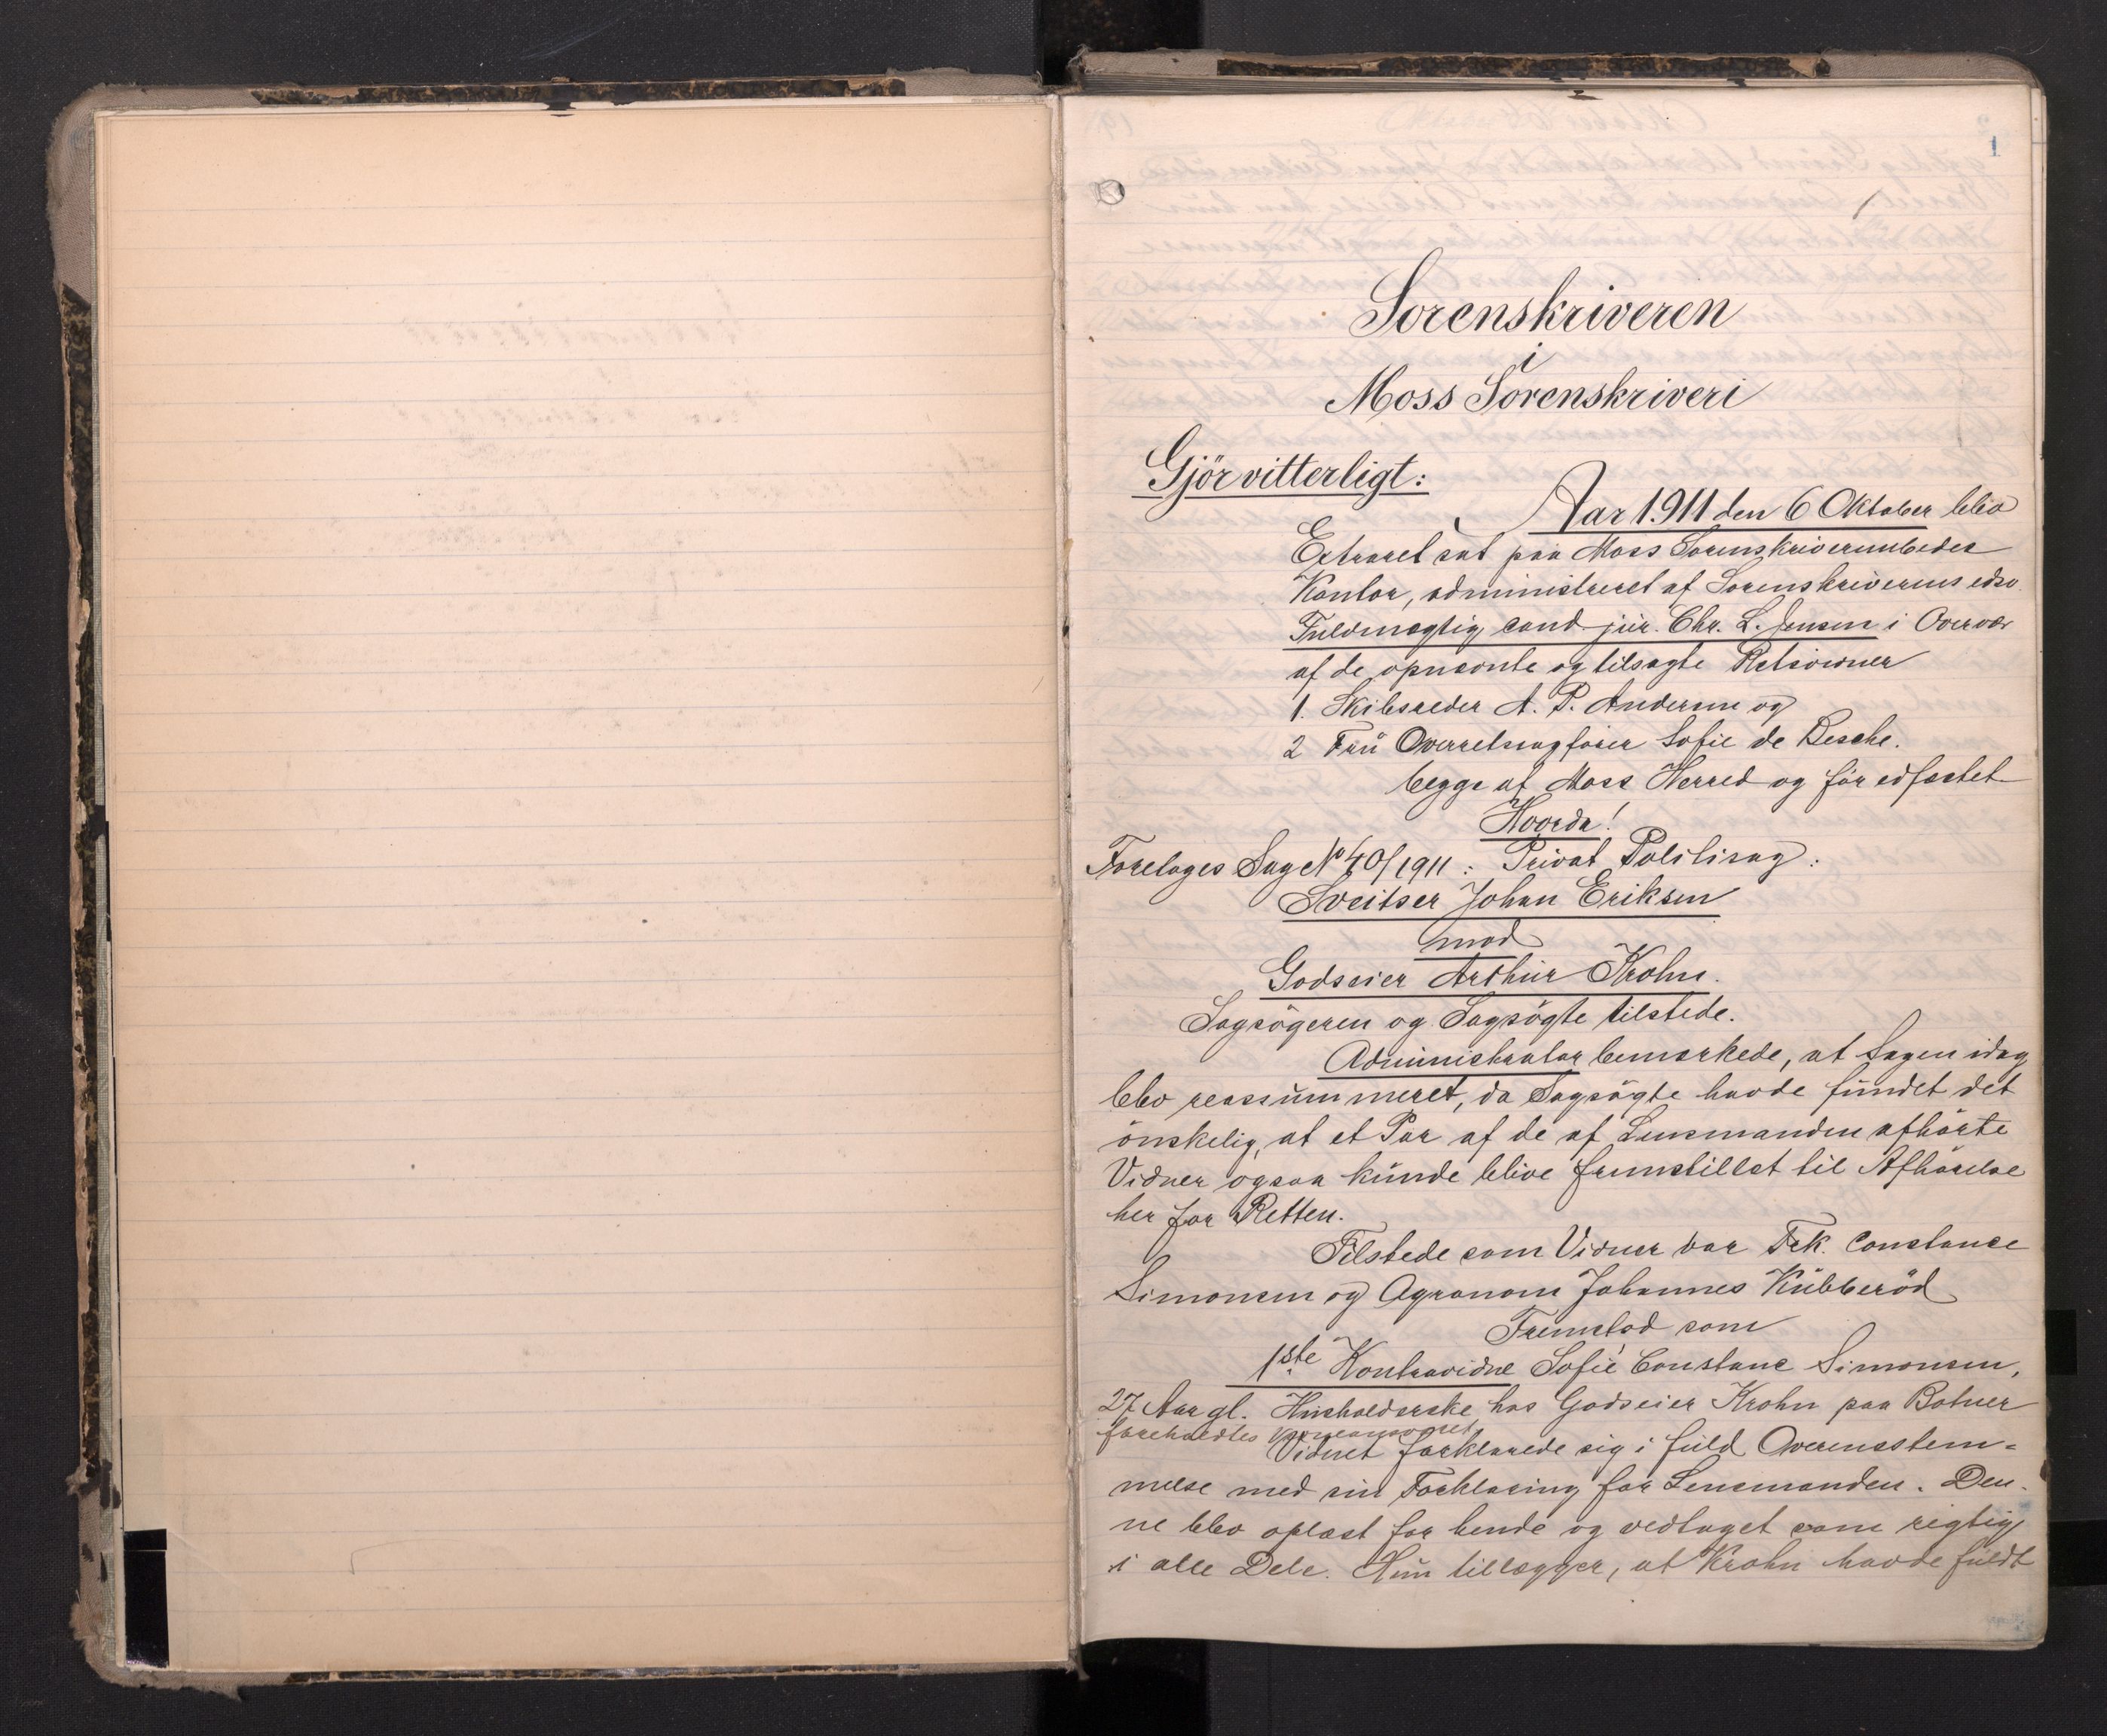 1
1
Sorenskriveren
i
Moss Sorenskriveri
Gjör vitterligt:
Aar 1.911 den 6 Oktober blev
Extraret sat paa Moss Sorenskriverembedes
Kontor, administreret af Sorenskriverens edsv.
Fuldmægtig cand. jur. Chr. L. Jensen i Overvær
af de opnævnte og tilsagte Retsvidner
1. Skibsreder A. P. Andersen og
2 Frü Overretssagförer Sofie de Besche.
begge af Moss Herred og för edfæstet
Hvorda!
Foretages Sag No 40/1911: Privat Politisag:
Sveitser Johan Eriksen
mod
Godseier Arthür Krohn.
Sagsögeren og Sagsögte tilstede.
Administrator bemærkede, at Sagen idag
blev reassümmeret, da Sagsögte havde fündet det
önskelig, at et Par af de af Lensmanden afhörte
Vidner ogsaa künde blive fremstillet til Afhörelse
her for Retten.
Tilstede som Vidner var Frk. Constance
Simonsen og Agronom Johannes Kübberöd
Fremstod som
1ste Kontravidne Sofie Constance Simonsen,
27 Aar gl. Hüsholderske hos Godseier Krohn paa Botner
foreholdtes Vidneansvaret
Vidnet forklarede sig i füld Overensstem=
melse med sin Forklaring for Lensmanden. Den-
ne blev oplæst for hende og vedtaget som rigtig
i alle Dele. Hün tillægger, at Krohn havde füldt